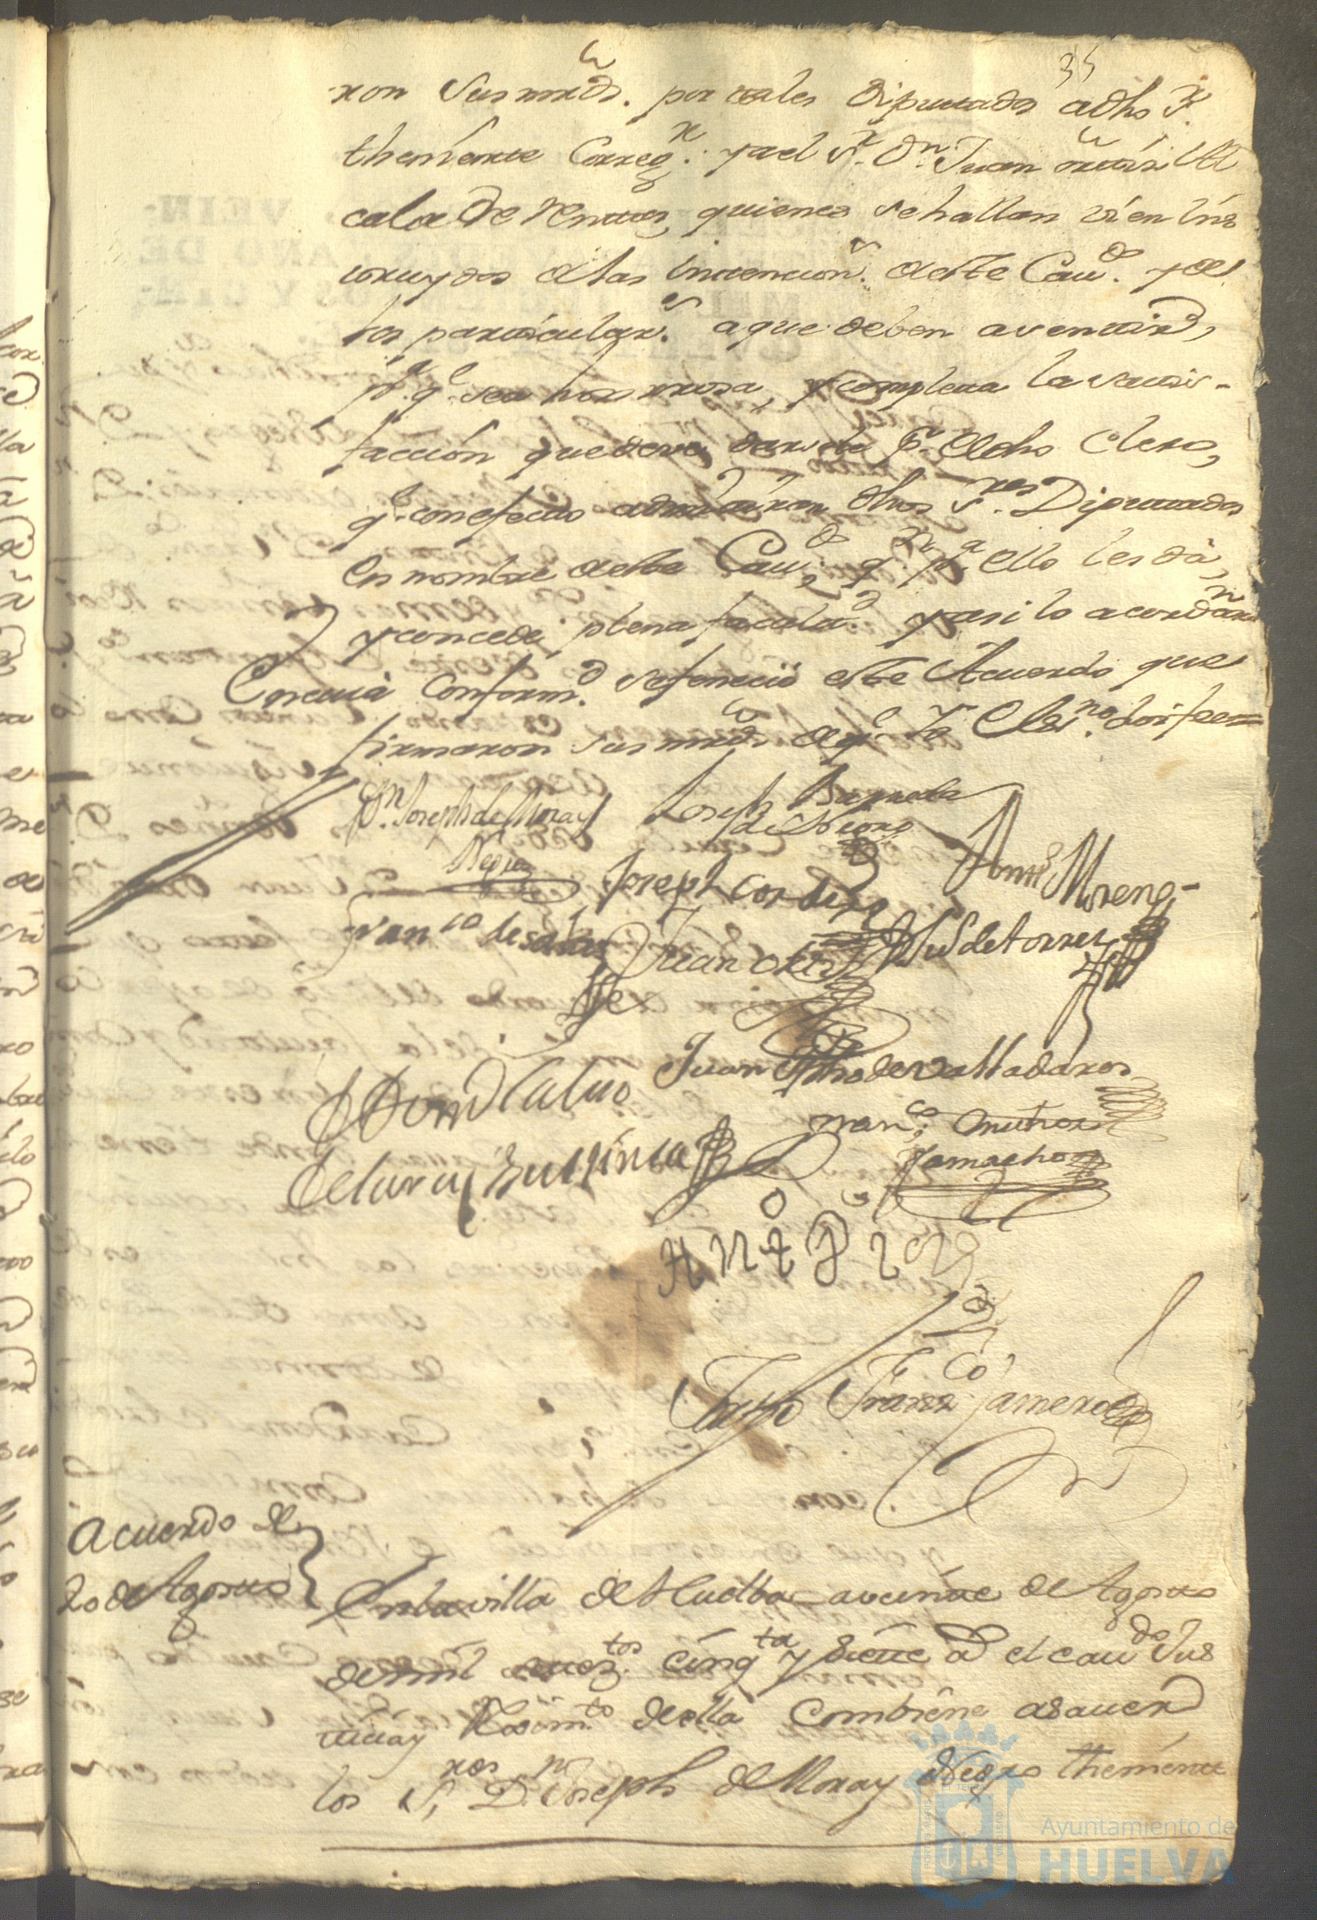 35
ron sus mrds. por tales Diputados adho Sr.
theniente Correg.r y a el Sr. Dn. Juan Ortiz Al
calde de Rentas, quienes se hallan vien íns
truydos de las intencion.s deste Cau.do y de
los particular.s a que deben aventaird,
p.a q.e sea honrrosa, y completa la satis-
facción que deve darse p.r el dho Clero,
q.e con efecto admitieron dhos S.res Diputados
en nombre deste Cau.do q.n p.a ello les dà,
y concede plena faculta.d y asi lo acordaron
En cuia conform.d se feneció este Acuerdo que
firmaron sus mrds de q.e Yo el Es.no doi fee=
Dn. Joseph de Moray
Negro
Joseph Barreda
de Osorno
Joseph Cordero
Antt.o Moreno
Fran.co de
Juan Ortiz
Luis de torres
Juan Alho de Valladares
Fran.co Muñoz
Camacho
Franz.co Camero
Acuerdo de
20 de Agosto
En la villa de Huelba a veinte de Agosto
de mil setez.tos cinq.ta y siete a.s el cau.do Jus
ticia y Reximto. de ella Combiene a sauer
los S.res D.n Joseph de Moray Negro theniente
Ayuntamiento de
HUELVA